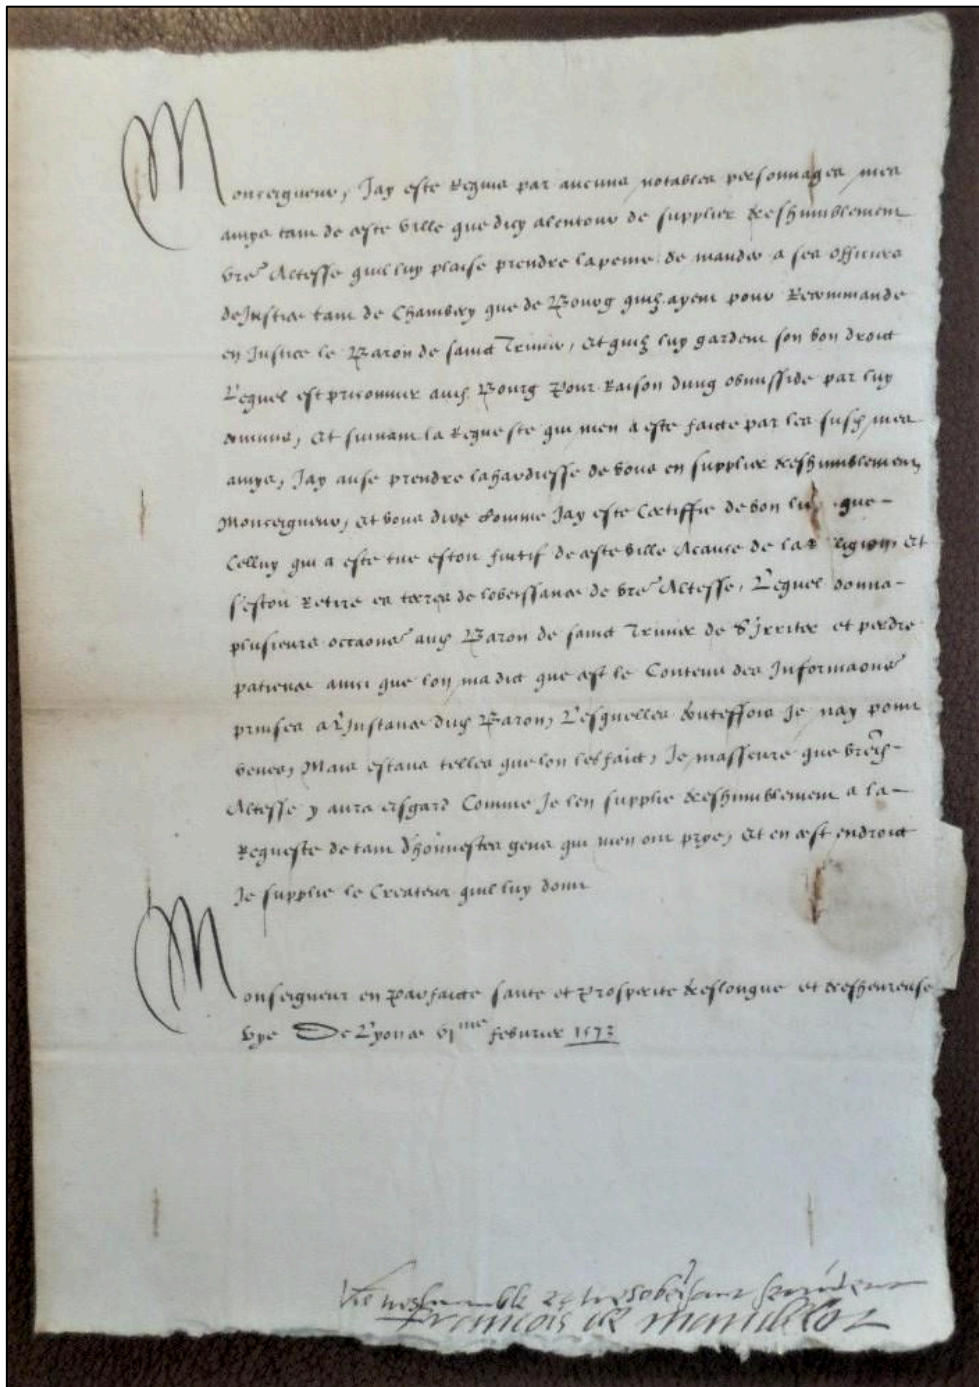 Monceigneur, Jay este Requis par aucuns notables personnages mes
amys tant de ceste Ville que dicy alentour de supplier treshumblement
vre Altesse quil luy plaise prendre la peine de mander a ses officiers
de Justice tant de Chambery que de Bourg quilz ayent pour Recommande
en Justice le Baron de sainct Trivier, et quilz luy gardent son bon droict
Lequel est prisonnier aud Bourg Pour Raison dung homisside par luy
commis, Et suivant la Requeste qui men a este faicte par les susd mes
amys, Jay ause prendre la hardiesse de vous en supplier treshumblement
Monceigneur, et vous dire Comme Jay este Certiffie de bon lieu que
Celluy qui a este tue estoit fuitif de ceste ville Acause de la Religion, et
sestoit Retire es terres de lobeissance de vre Altesse, Lequel donna
plusieurs occaons aud Baron de sainct Trivier de S'irriter et perdre
patience ainsi que lon ma dict que cest le Contenu des Informaons
prinses a L'Instance dud Baron, Lesquelles touteffois Je nay point
veues, Mais estans telles que lon les faict, Je masseure que vred
Altesse y aura esgard Comme Je len supplie treshumblement a la
Requeste de tant d'honnestes gens qui men ont prye, Et en cest endroict
Je supplie le Createur quil luy doint
Monseigneur en parfaicte sante et Prosperite treslongue et tresheureuse
vye De Lyon ce vjme febvrier 1573
Vre treshumble et tresobeissant serviteur
Francois de mandelot